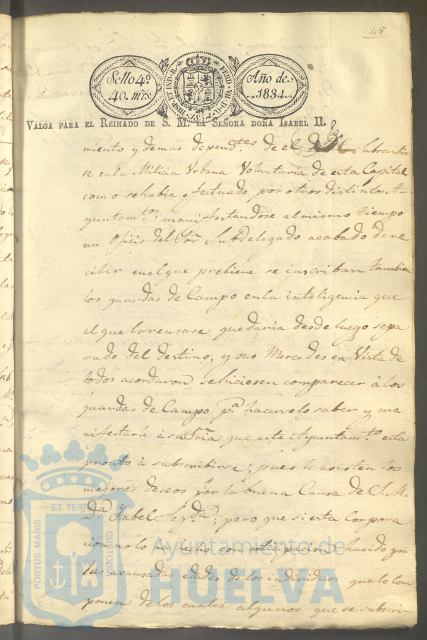 48
Sello 4º
40. mrs.
Año de
1834.
VALGA PARA EL REINADO DE S. M. LA SEÑORA DOÑA ISABEL II.
miento y demas depend.tes de el subscribir
se en la Milicia Urbana Voluntaria de esta Capital
como se habia efectuado por otros distintos A
yuntam.tos; manifestandose al mismo tiempo
un Oficio del Sor. Subdelegado acabado de re
cibir en el que prebiene se inscriban tambien
los guardas de Campo en la inteligencia que
el que lo reusase quedaria desde luego sepa
rado del destino; y sus Mercedes en Vista de
todo acordaron se hiciesen comparecer à los
guardas de Campo, p.a hacerselo saber y ma
nifestar à su Sria. que este Ayuntam.to esta
pronto à subscribirse; pues le asisten los
mejores deseos por la buena Causa de S. M.
D.a Ysabel Seg.da; pero que si esta Corpora
cion no lo ha hecho con anticipacion ha sido por
las avansadas edades de los individuos que lo com
ponen de los cuales algunos que se subscri
PORTUS MARIS
ET TERRÆ
CUSTODIA
Ayuntamiento de
HUELVA